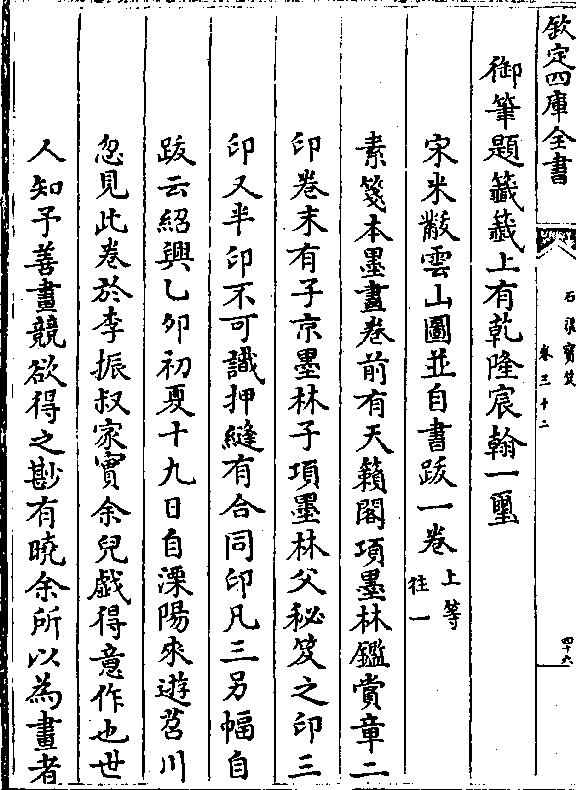 欽定四庫全書
石渠寳笈
卷三十二
四十六
御筆題籤籤上有乾隆宸翰一璽
宋米黻雲山圖並自書跋一卷 上等
往一
素箋本墨畫卷前有天籟閣項墨林鑑賞章二
印卷末有子京墨林子項墨林父秘笈之印三
印又半印不可識押縫有合同印凡三另幅自
跋云紹興乙卯初夏十九日自溧陽來遊苕川
忽見此卷於李振叔家實余兒戯得意作也世
人知予善畫競欲得之尠有曉余所以為畫者